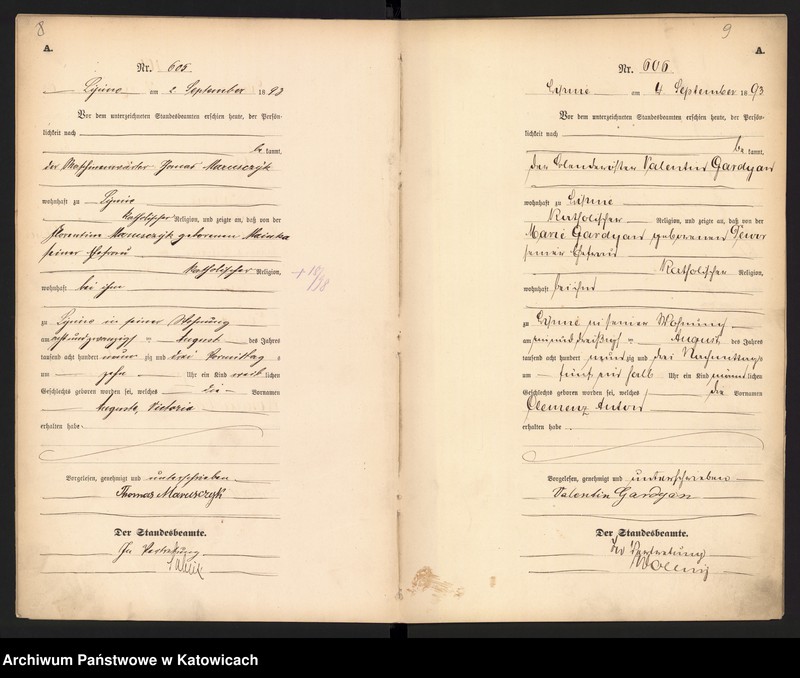 8
A.
Nr. 605
am 2. September 1893
Vor dem unterzeichneten Standesbeamten erschien heute, der Persön-
lichkeit nach
be kannt,
der Maschinenwärter Thomas Marusczyk
wohnhaft zu
katholischer Religion, und zeigte an, daß von der
Florentine Marusczyk geborenen Mainka
seiner Ehefrau
katholischer Religion,
wohnhaft bei ihm
zu in seiner Wohnung
am achtundzwanzigsten August des Jahres
tausend acht hundert neun zig und drei Vormittag s
um zehn Uhr ein Kind weib lichen
Geschlechts geboren worden sei, welches die Vornamen
Auguste, Victoria
erhalten habe.
Vorgelesen, genehmigt und unterschrieben
Thomas Marusczyk
Der Standesbeamte.
In Vertretung
9
A.
Nr. 606
am 4 September 1893
Vor dem unterzeichneten Standesbeamten erschien heute, der Persön-
lichkeit nach
be kannt,
der Valentin Gardyan
wohnhaft zu
Katholischer Religion, und zeigte an, daß von der
Marie Gardyan geborenen
seiner Ehefrau
Katholischer Religion,
wohnhaft bei ihm
zu in seiner Wohnung
am ein und dreißigsten August des Jahres
tausend acht hundert neun zig und drei Nachmittag s
um fünf ein halb Uhr ein Kind männ lichen
Geschlechts geboren worden sei, welches die Vornamen
Clemenz Anton
erhalten habe.
Vorgelesen, genehmigt und unterschrieben
Valentin Gardyan
Der Standesbeamte.
In Vertretung
Archiwum Państwowe w Katowicach